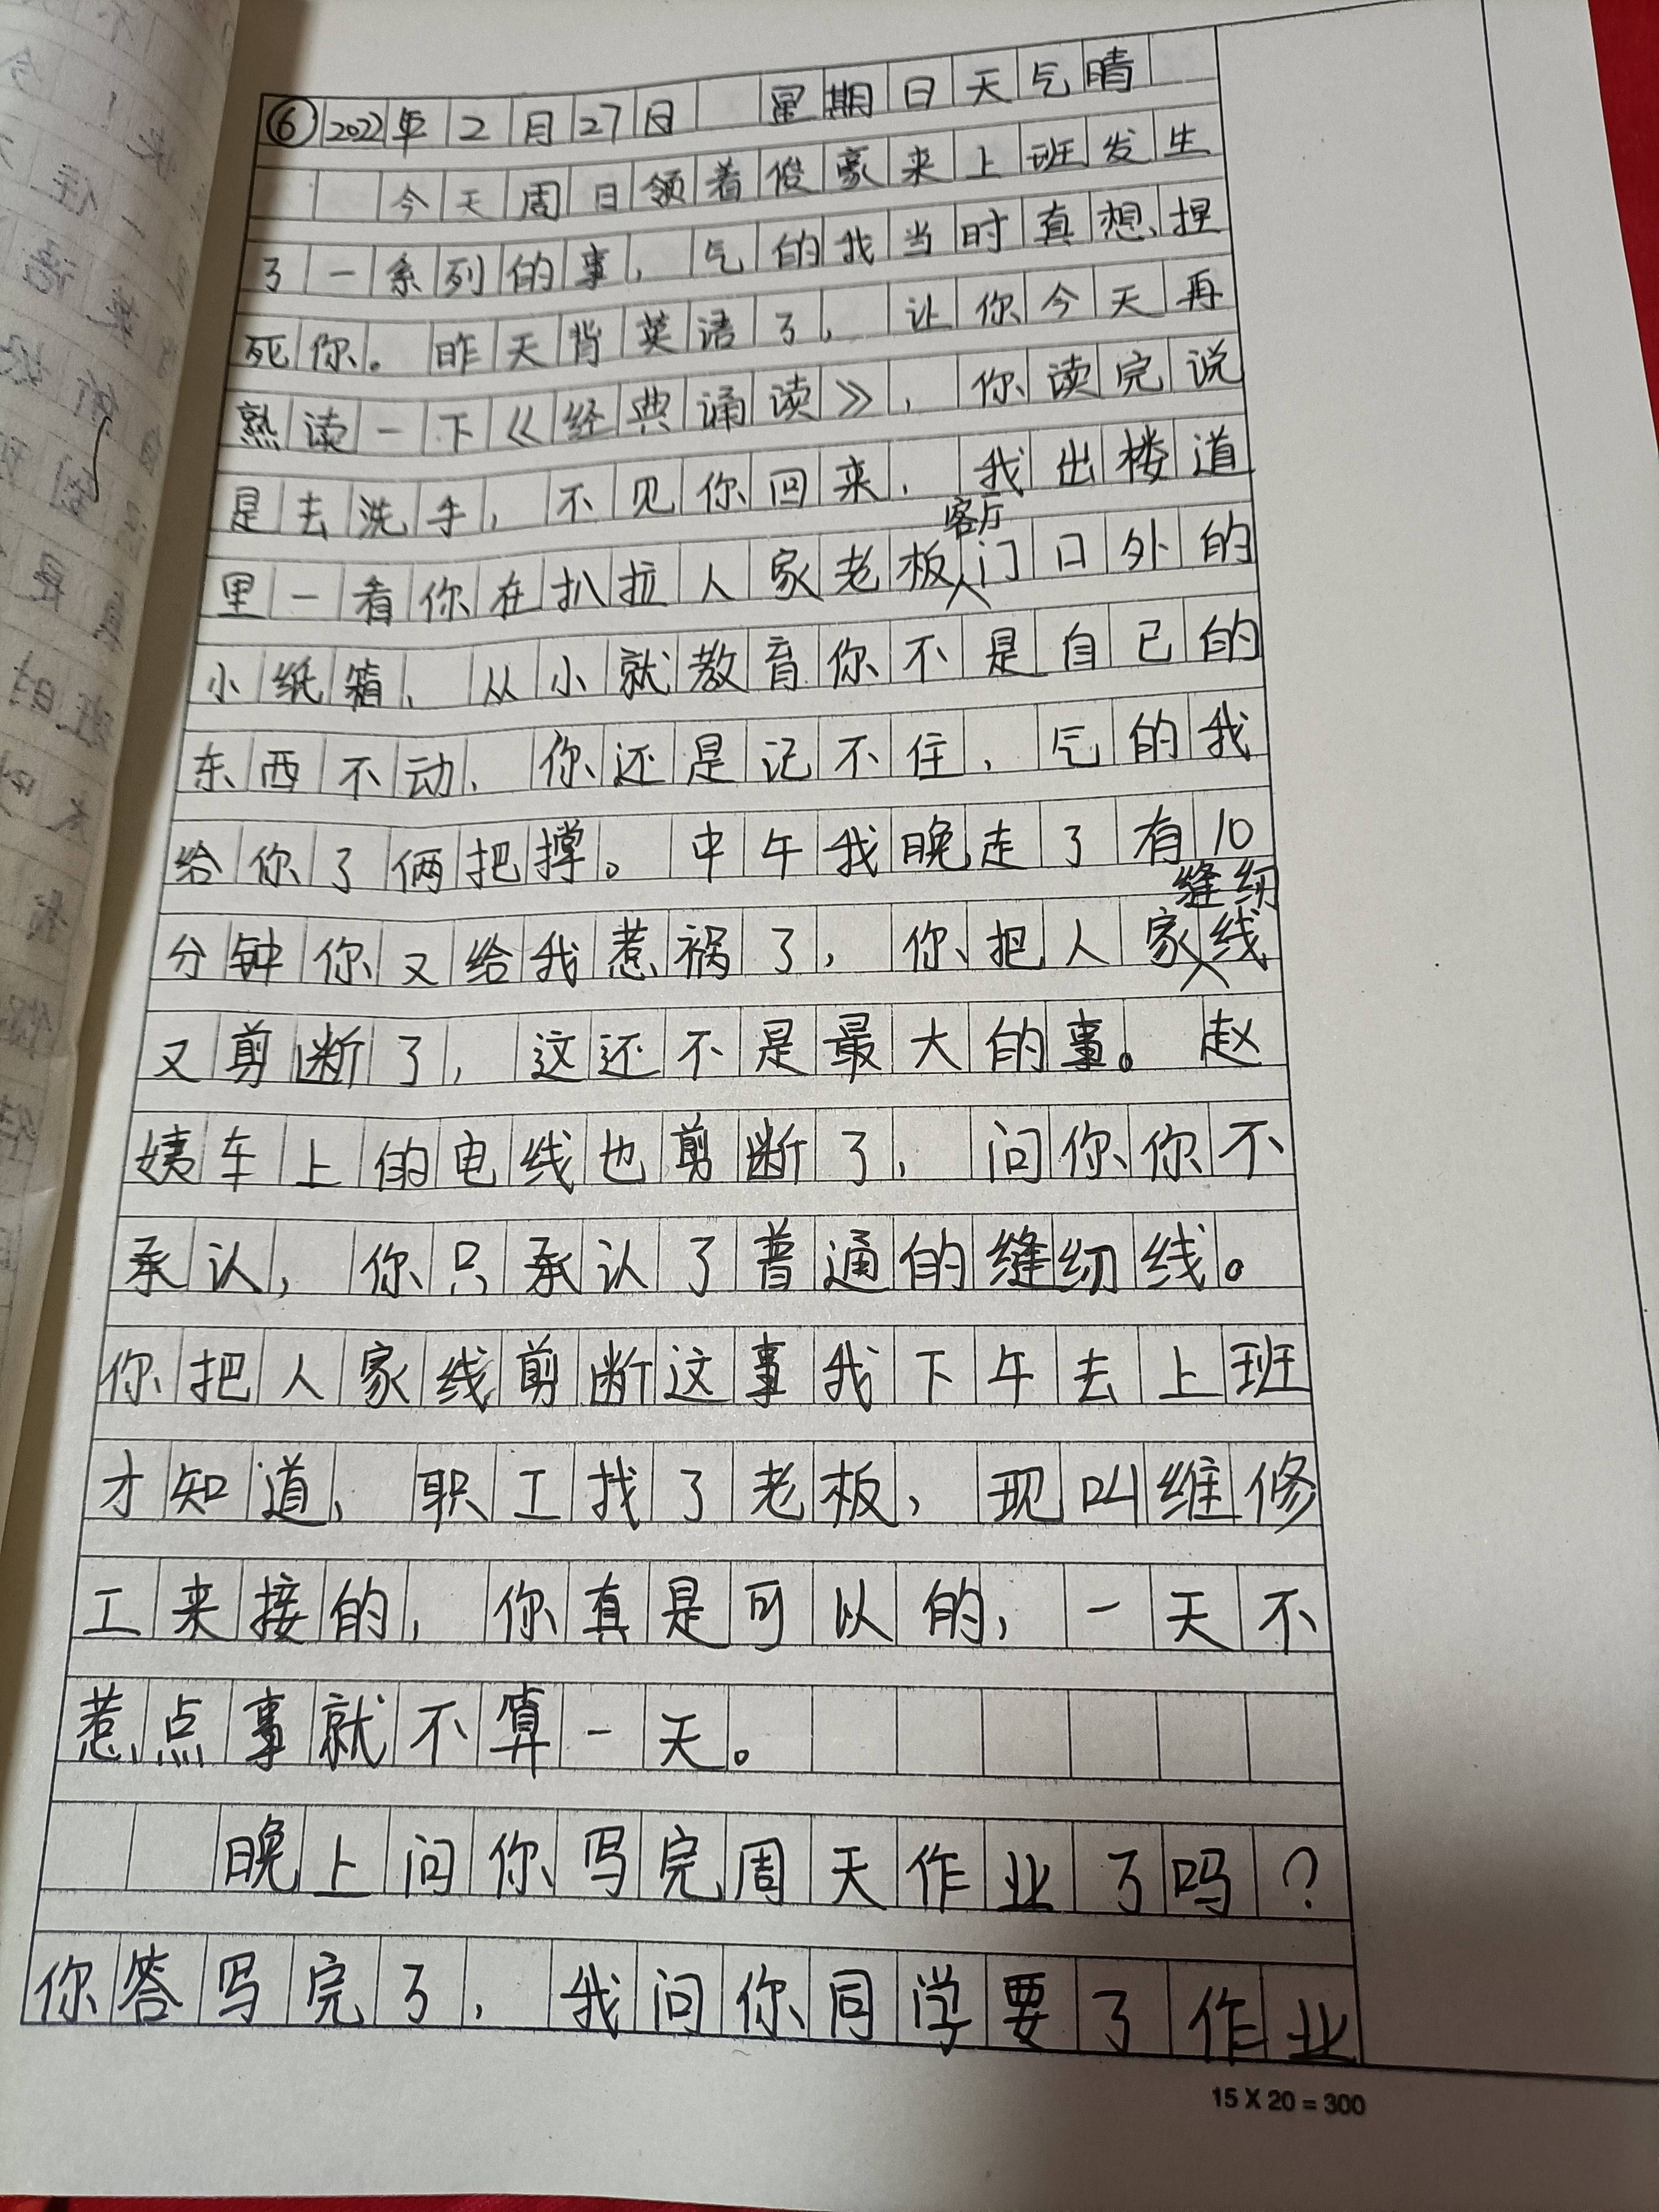 ⑥2022年2月27日 星期日天气晴
今天周日领着俊豪来上班发生
了一系列的事，气的我当时真想捏
死你。昨天背英语了，让你今天再
熟读一下《经典诵读》，你读完说
是去洗手，不见你回来，我出楼道
里一看你在扒拉人家老板客厅门口外的
小纸箱，从小就教育你不是自己的
东西不动，你还是记不住，气的我
给你了俩把撑。中午我晚走了有10
分钟你又给我惹祸了，你把人家缝纫线
又剪断了，这还不是最大的事。赵
姨车上的电线也剪断了，问你你不
承认，你只承认了普通的缝纫线。
你把人家线剪断这事我下午去上班
才知道，职工找了老板，现叫维修
工来接的，你真是可以的，一天不
惹点事就不算一天。
晚上问你写完周天作业了吗？
你答写完了，我问你同学要了作业
15 X 20 = 300